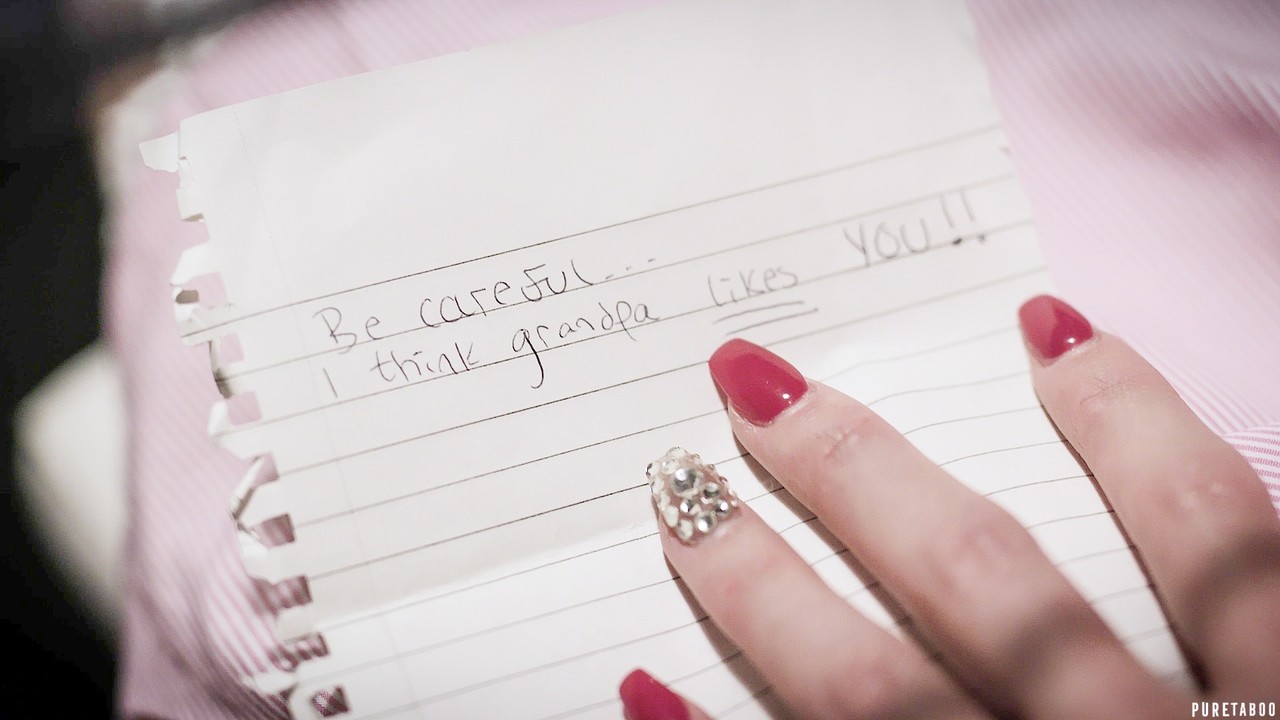 Be careful...
I think grandpa likes YOU!!
PURETABOO